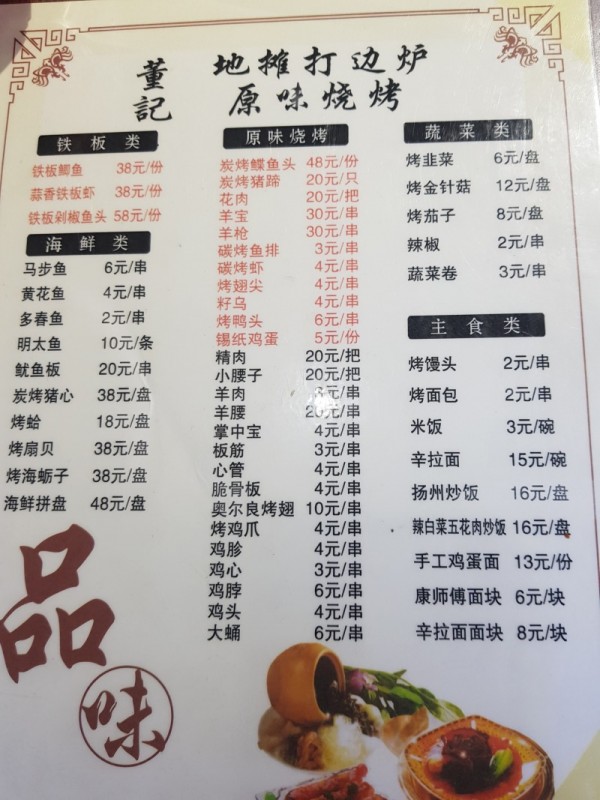 董記
地摊打边炉
原味烧烤
铁板类
铁板鲫鱼 38元/份
蒜香铁板虾 38元/份
铁板剁椒鱼头 58元/份
海鲜类
马步鱼 6元/串
黄花鱼 4元/串
多春鱼 2元/串
明太鱼 10元/条
鱿鱼板 20元/串
炭烤猪心 38元/盘
烤蛤 18元/盘
烤扇贝 38元/盘
烤海蛎子 38元/盘
海鲜拼盘 48元/盘
原味烧烤
炭烤鲽鱼头 48元/份
炭烤猪蹄 20元/只
花肉 20元/把
羊宝 30元/串
羊枪 30元/串
碳烤鱼排 3元/串
碳烤虾 4元/串
烤翅尖 4元/串
籽乌 4元/串
烤鸭头 6元/串
锡纸鸡蛋 5元/份
精肉 20元/把
小腰子 20元/把
羊肉 元/串
羊腰 20元/串
掌中宝 4元/串
板筋 3元/串
心管 4元/串
脆骨板 4元/串
奥尔良烤翅 10元/串
烤鸡爪 4元/串
鸡胗 4元/串
鸡心 3元/串
鸡脖 6元/串
鸡头 4元/串
大蛹 6元/串
蔬菜类
烤韭菜 6元/盘
烤金针菇 12元/盘
烤茄子 8元/盘
辣椒 2元/串
蔬菜卷 3元/串
主食类
烤馒头 2元/串
烤面包 2元/串
米饭 3元/碗
辛拉面 15元/碗
扬州炒饭 16元/盘
辣白菜五花肉炒饭 16元/盘
手工鸡蛋面 13元/份
康师傅面块 6元/块
辛拉面面块 8元/块
品味